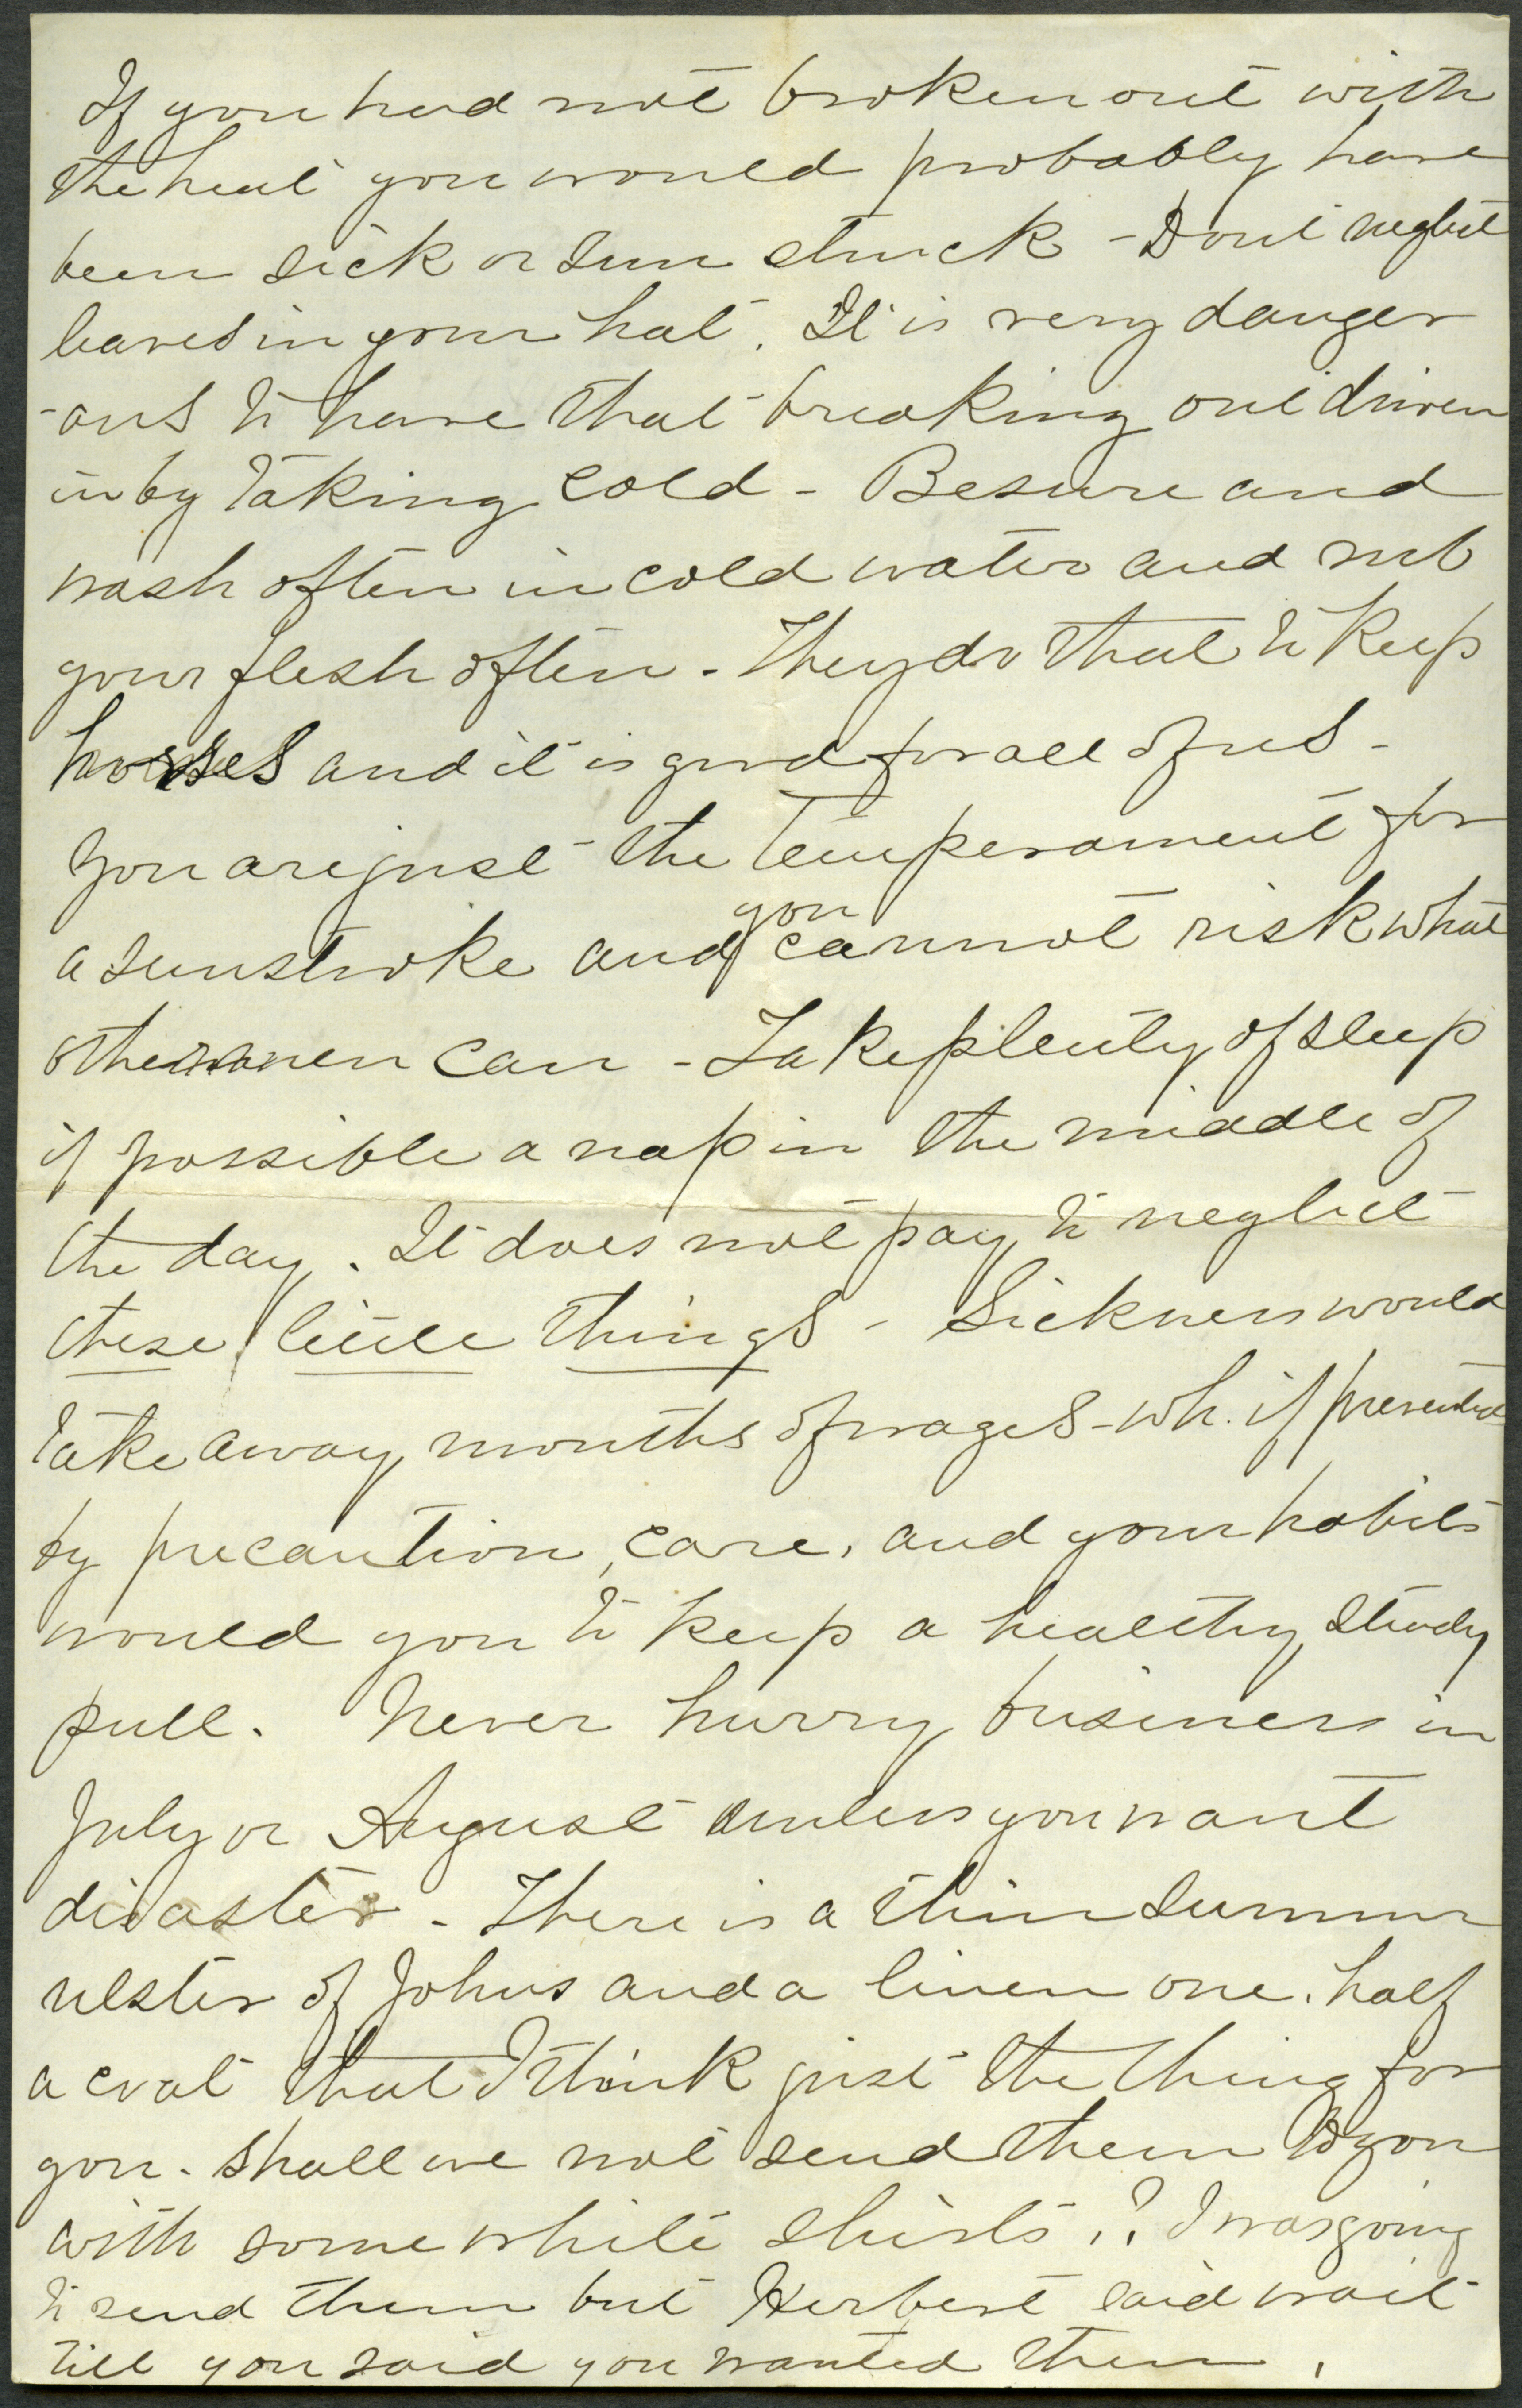 If you had not broken out with
the heat you would probably have
been sick or sun struck - Dont neglect
leaves in your hat. It is very danger
-ous to have that breaking out driven
in by taking cold - Besure and
wash often in cold water and rub
your flesh often - They do that to keep
horses and it is good for all of us -
You are just the temperament for
a sunstroke and you cannot risk what
other men can - Take plenty of sleep
if possible a nap in the middle of
the day. It does not pay to neglect
these little things - Sickness would
take away months of wages - wh. if prevented
by precaution, care, and your habits
would you to keep a healthy, steady
pull. Never hurry business in
July or August unless you want
disaster - There is a thin summer
ulster of Johns and a linen one. half
a coat that I think just the thing for
you. Shall we not send them to you
with some white shirts,? I was going
to send them but Herbert said wait
till you said you wanted them.